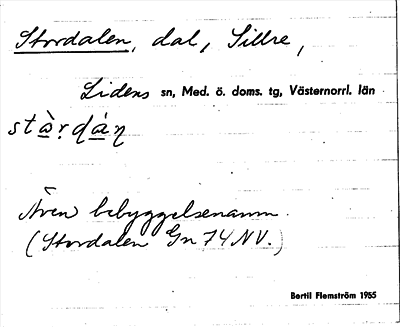 Stordalen, dal, Sillre,
Lidens sn, Med. ö. doms. tg, Västernorrl. län
Även bebyggelsenamn.
(Stordalen Gn 74 NV.)
Bertil Flemström 1955